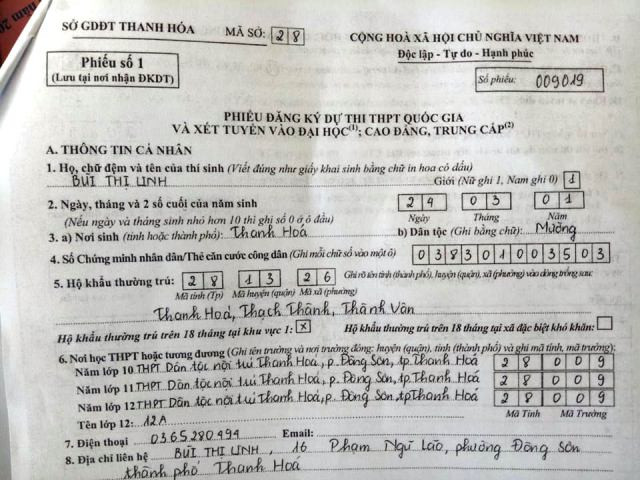 SỞ GDĐT THANH HÓA MÃ SỞ: 2 8 CỘNG HOÀ XÃ HỘI CHỦ NGHĨA VIỆT NAM
Độc lập - Tự do - Hạnh phúc
Phiếu số 1
(Lưu tại nơi nhận ĐKDT)
Số phiếu: 009019
PHIẾU ĐĂNG KÝ DỰ THI THPT QUỐC GIA
VÀ XÉT TUYỂN VÀO ĐẠI HỌC(1); CAO ĐẲNG, TRUNG CẤP(2)
A. THÔNG TIN CÁ NHÂN
1. Họ, chữ đệm và tên của thí sinh (Viết đúng như giấy khai sinh bằng chữ in hoa có dấu)
BÙI THỊ LINH Giới (Nữ ghi 1, Nam ghi 0) 1
2. Ngày, tháng và 2 số cuối của năm sinh 2 4 0 3 0 1
(Nếu ngày và tháng sinh nhỏ hơn 10 thì ghi số 0 ở ô đầu) Ngày Tháng Năm
3. a) Nơi sinh (tỉnh hoặc thành phố): Thanh Hoá b) Dân tộc (Ghi bằng chữ): Mường
4. Số Chứng minh nhân dân/Thẻ căn cước công dân (Ghi mỗi chữ số vào một ô) 0 3 8 3 0 1 0 0 3 5 0 3
5. Hộ khẩu thường trú: 2 8 1 3 2 6 Ghi rõ tên tỉnh (thành phố), huyện (quận), xã (phường) vào dòng trống sau:
Mã tỉnh (Tp) Mã huyện (quận) Mã xã (phường)
Thanh Hoá, Thạch Thành, Thành Vân
Hộ khẩu thường trú trên 18 tháng tại khu vực 1: X Hộ khẩu thường trú trên 18 tháng tại xã đặc biệt khó khăn:
6. Nơi học THPT hoặc tương đương (Ghi tên trường và nơi trường đóng: huyện (quận), tỉnh (thành phố) và ghi mã tỉnh, mã trường):
Năm lớp 10 THPT Dân tộc nội trú Thanh Hoá, p. Đông Sơn, tp. Thanh Hoá 2 8 0 0 9
Năm lớp 11 THPT Dân tộc nội trú Thanh Hoá, p. Đông Sơn, tp. Thanh Hoá 2 8 0 0 9
Năm lớp 12 THPT Dân tộc nội trú Thanh Hoá, p. Đông Sơn, tp Thanh Hoá 2 8 0 0 9
Tên lớp 12: 12A Mã Tỉnh Mã Trường
7. Điện thoại 0365280494 Email:
8. Địa chỉ liên hệ BÙI THỊ LINH, 16 Phạm Ngũ Lão, phường Đông Sơn
thành phố Thanh Hoá